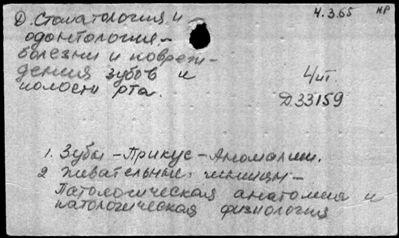 Д. Стоматология и
4.3.65
НР
одонтология –
болезни и повреж-
дения зубов и
полости рта.
4 шт.
Д33159
1. Зубы – Прикус – Аномалии.
2 Жевательные мышцы –
Патологическая анатомия и
патологическая физиология